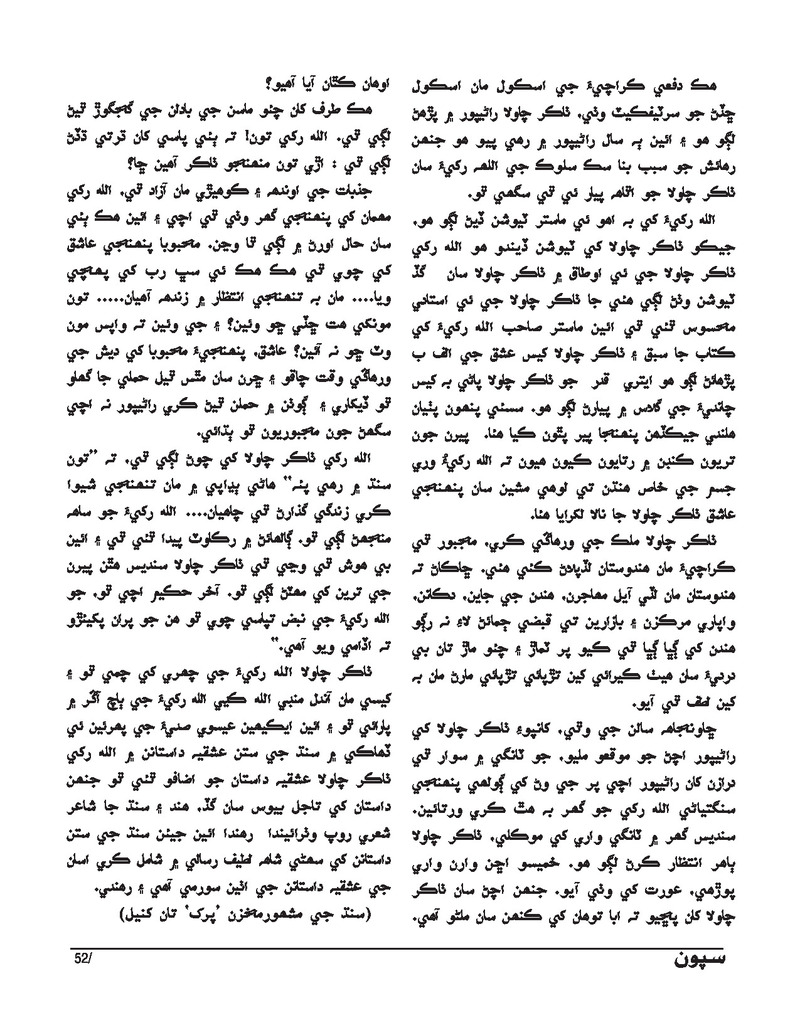 هڪ دفعي ڪراچيءَ جي اسڪول مان اسڪول
ڇڏڻ جو سرٽيفڪيٽ وٺي، ٺاڪر چاولا راڻيپور ۾ پڙهڻ
لڳو هو ۽ ائين ٻہ سال راڻيپور ۾ رهي پيو هو جنهن
رهائش جو سبب بنا سڪ سلوڪ جي اللهہ رکيءَ سان
ٺاڪر چاولا جو اٿاهہ پيار ئي ٿي سگهي ٿو.
الله رکيءَ کي بہ اهو ئي ماستر ٽيوشن ڏيڻ لڳو هو،
جيڪو ٺاڪر چاولا کي ٽيوشن ڏيندو هو الله رکي
ٺاڪر چاولا جي ئي اوطاق ۾ ٺاڪر چاولا سان گڏ
ٽيوشن وٺڻ لڳي هئي جا ٺاڪر چاولا جي ئي استاني
محسوس ٿئي ٿي ائين ماستر صاحب الله رکيءَ کي
ڪتاب جا سبق ۽ ٺاڪر چاولا کيس عشق جي الف ب
پڙهائڻ لڳو هو ايتري قدر جو ٺاڪر چاولا پاڻي بہ کيس
چانديءَ جي گلاس ۾ پيارڻ لڳو هو. سسئي پنهون پٺيان
هلندي جيڪڏهن پنهنجا پير پٿون ڪيا هئا، پيرن جون
تريون ڪنبن ۾ رتايون ڪيون هيون تہ الله رکيءَ وري
جسم جي خاص هنڌن تي لوهي مشين سان پنهنجي
عاشق ٺاڪر چاولا جا نالا لکرايا هئا.
ٺاڪر چاولا ملڪ جي ورهاڱي ڪري، مجبور ٿي
ڪراچيءَ مان هندوستان لڏپلاڻ ڪئي هئي، ڇاڪاڻ تہ
هندوستان مان لڏي آيل مهاجرن، هندن جي جاين، دڪانن،
واپاري مرڪزن ۽ بازارين تي قبضي ڄمائڻ لاءِ نہ رڳو
هندن کي ڳڀا ڳڀا ٿي ڪيو پر ٽماڙ ۽ چئو ماڙ تان بي
درديءَ سان هيٺ ڪيرائي کين تڙپائي تڙپائي مارڻ مان بہ
کين لطف ٿي آيو.
ڇاونجاهہ سالن جي وٿي، کانپوءِ ٺاڪر چاولا کي
راڻيپور اچڻ جو موقعو مليو، جو ٽانگي ۾ سوار ٿي
درازن کان راڻيپور اچي پر جي وڻ کي ڳولهي پنهنجي
سنگتياڻي الله رکي جو گهر بہ هٿ ڪري ورتائين.
سنديس گهر ۾ ٽانگي واري کي موڪلي، ٺاڪر چاولا
ٻاهر انتظار ڪرڻ لڳو هو. خميسو اڇن وارن واري
پوڙهي، عورت کي وٺي آيو. جنهن اچڻ سان ٺاڪر
چاولا کان پڇيو تہ ابا توهان کي ڪنهن سان ملڻو آهي.
اوهان ڪٿان آيا آهيو؟
هڪ طرف کان چئو ماسن جي بادلن جي گجگوڙ ٿيڻ
لڳي ٿي. الله رکي تون! تہ ٻئي پاسي کان ڌرتي ڌڏڻ
لڳي ٿي : اڙي تون منهنجو ٺاڪر آهين ڇا؟
جذبات جي اونڌهہ ۽ ڪوهيڙي مان آزاد ٿي، الله رکي
مهمان کي پنهنجي گهر وٺي ٿي اچي ۽ ائين هڪ ٻئي
سان حال اورڻ ۾ لڳي ٿا وڃن. محبوبا پنهنجي عاشق
کي چوي ٿي هڪ هڪ ٿي سڀ رب کي پهچي
ويا.... مان بہ تنهنجي انتظار ۾ زندهہ آهيان..... تون
مونکي هت ڇڏي ڇو وئين؟ ۽ جي وئين تہ واپس مون
وٽ ڇو نہ آئين؟ عاشق، پنهنجيءَ محبوبا کي ديش جي
ورهاڱي وقت چاقو ۽ ڇرن سان مٿس ٿيل حملي جا گهاو
ٿو ڏيکاري ۽ ڳوٺن ۾ حملن ٿيڻ ڪري راڻيپور نہ اچي
سگهڻ جون مجبوريون ٿو ٻڌائي.
الله رکي ٺاڪر چاولا کي چوڻ لڳي ٿي، تہ ”تون
سنڌ ۾ رهي پئہ“ هاڻي ٻڍاپي ۾ مان تنهنجي شيوا
ڪري زندگي گذارڻ ٿي چاهيان.... الله رکيءَ جو ساهہ
منجهڻ لڳي ٿو. ڳالهائڻ ۾ رڪاوٽ پيدا ٿئي ٿي ۽ ائين
بي هوش ٿي وڃي ٿي ٺاڪر چاولا سنديس هٿن پيرن
جي ترين کي مهٽڻ لڳي ٿو. آخر حڪيم اچي ٿو، جو
الله رکيءَ جي نبض تپاسي چوي ٿو هن جو پران پکيئڙو
تہ اڏامي ويو آهي.“
ٺاڪر چاولا الله رکيءَ جي چهري کي چمي ٿو ۽
کيسي مان آندل منبي الله کيي الله رکيءَ جي ٻاچ آڱر ۾
پارائي ٿو ۽ ائين ايڪيهين عيسوي صديءَ جي پهرئين ئي
ڏهاڪي ۾ سنڌ جي ستن عشقيہ داستانن ۾ الله رکي
ٺاڪر چاولا عشقيہ داستان جو اضافو ٿئي ٿو جنهن
داستان کي تاجل بيوس سان گڏ، هند ۽ سنڌ جا شاعر
شعري روپ وٺرائيندا رهندا ائين جيئن سنڌ جي ستن
داستانن کي سهڻي شاهہ لطيف رسالي ۾ شامل ڪري اسان
جي عشقيہ داستانن جي اٺين سورمي آهي ۽ رهندي.
(سنڌ جي مشهورمخزن ’پرک‘ تان کنيل)
52/
سپون